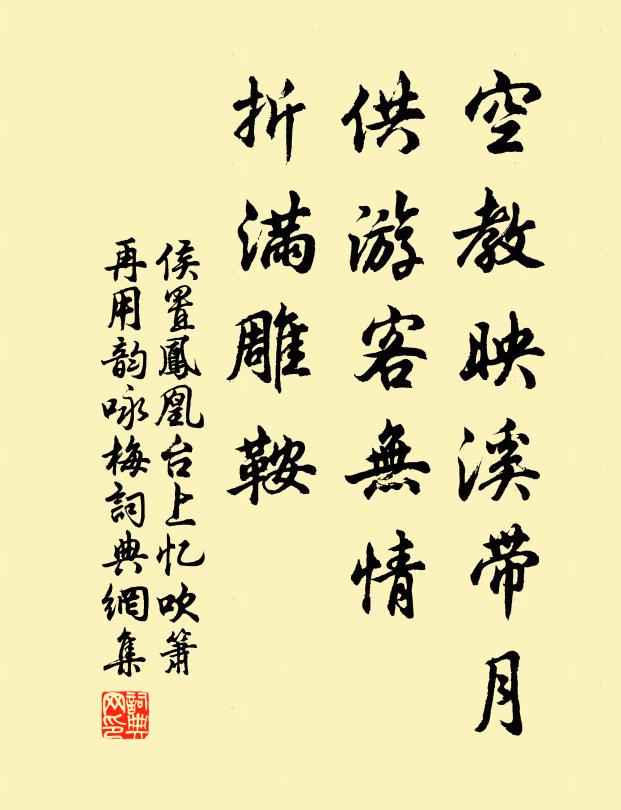 空教映溪带月
供游客無情
折满雕鞍
侯置鳳凰台上忆吹箫
再用韵咏梅詞典網集
詞典
网印